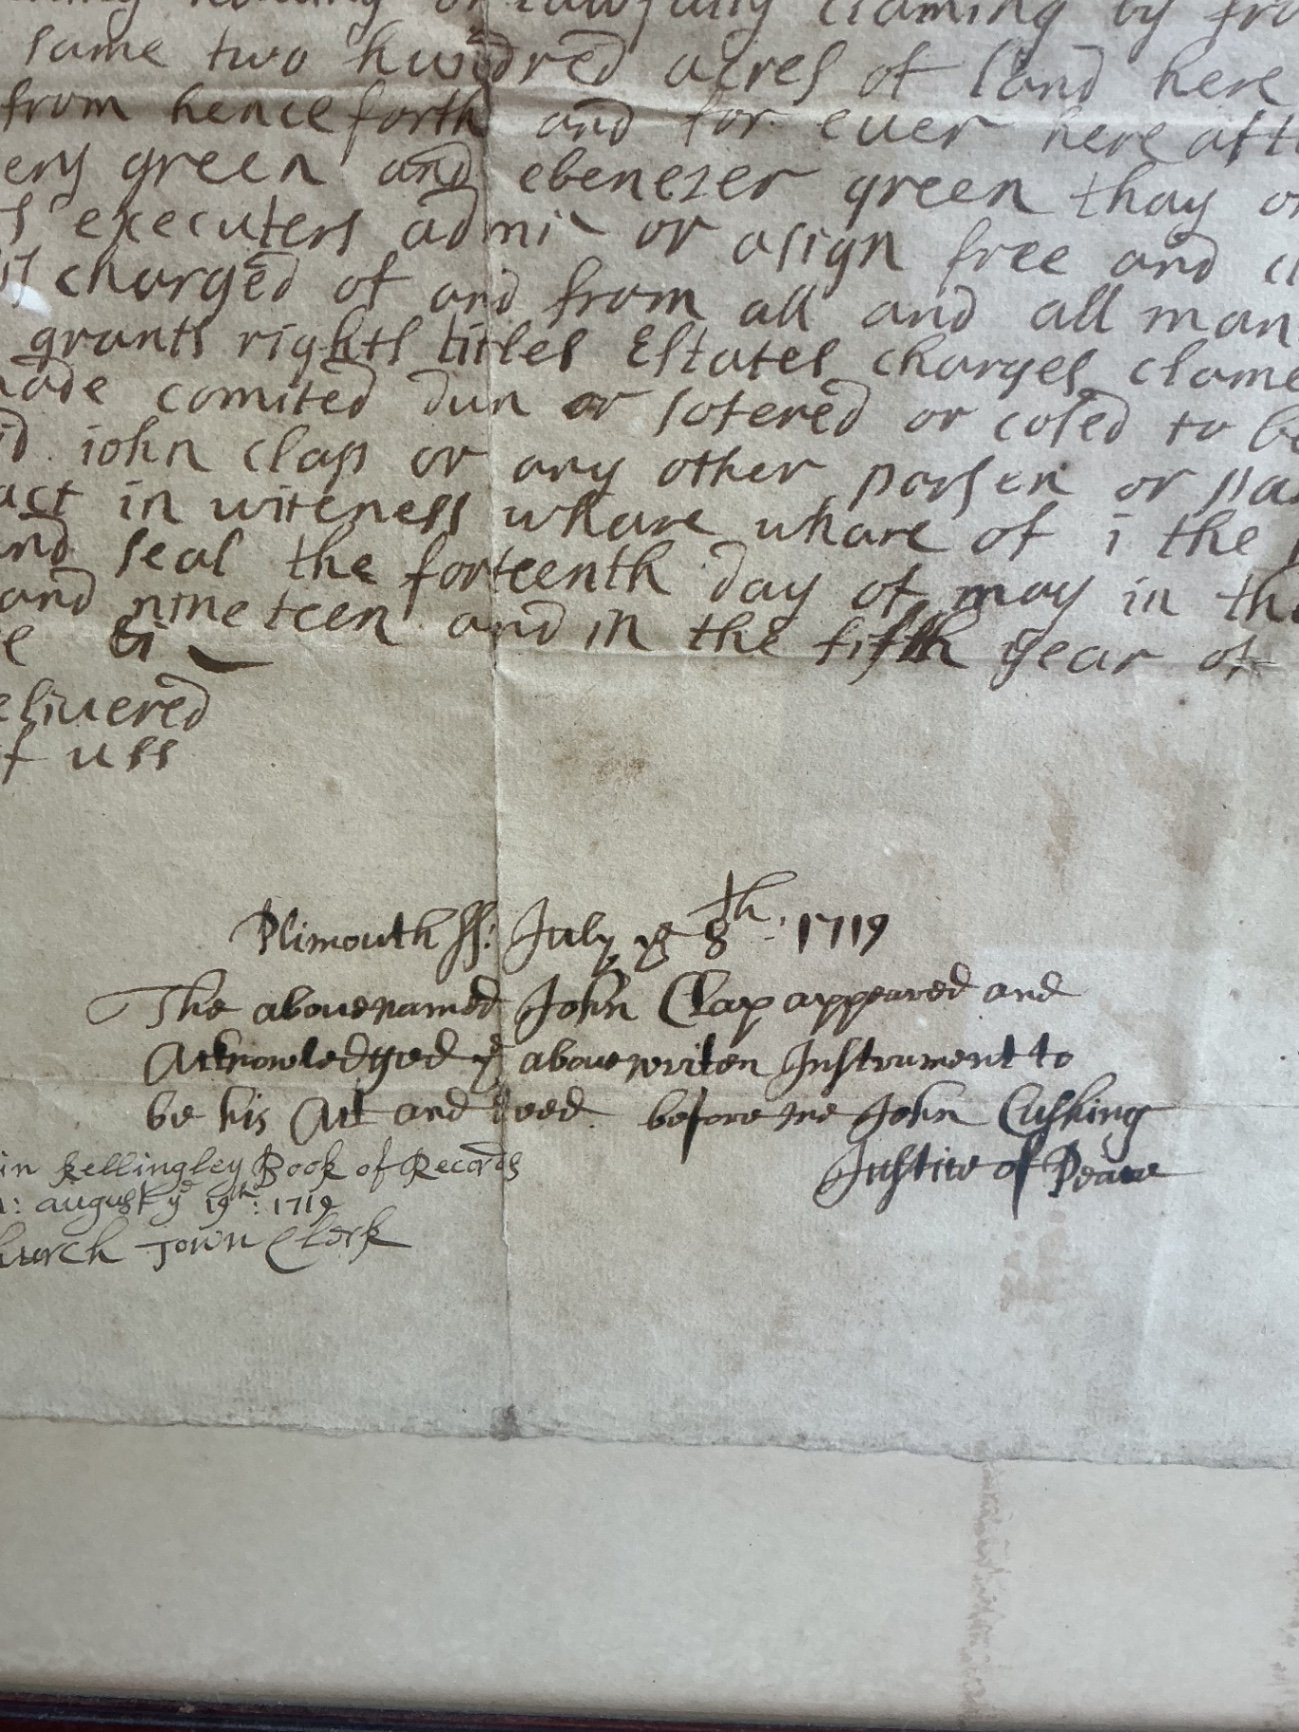 or lawfully claming by fro
same two hundred acres of land here
from henceforth and for ever here aft
ery green and ebenezer green thay or
s executers admi or asign free and cl
charged of and from all and all man
grants rights titles Estates charges clame
made comited dun or sofered or cosed to be
id iohn clap or any other parsen or par
act in witeness whare whare of i the
and seal the forteenth day of may in the
and nineteen and in the fifth year of
e &
elivered
f uss
Plimouth ss: July ye 8th: 1719
The abovenamed John Clap appeared and
Acknowledged ye above writen Instrument to
be his Act and Deed before me John Cushing
Justice of Peace
in Kellingley Book of Records
: august ye 19th: 1719
hurch Town Clerk